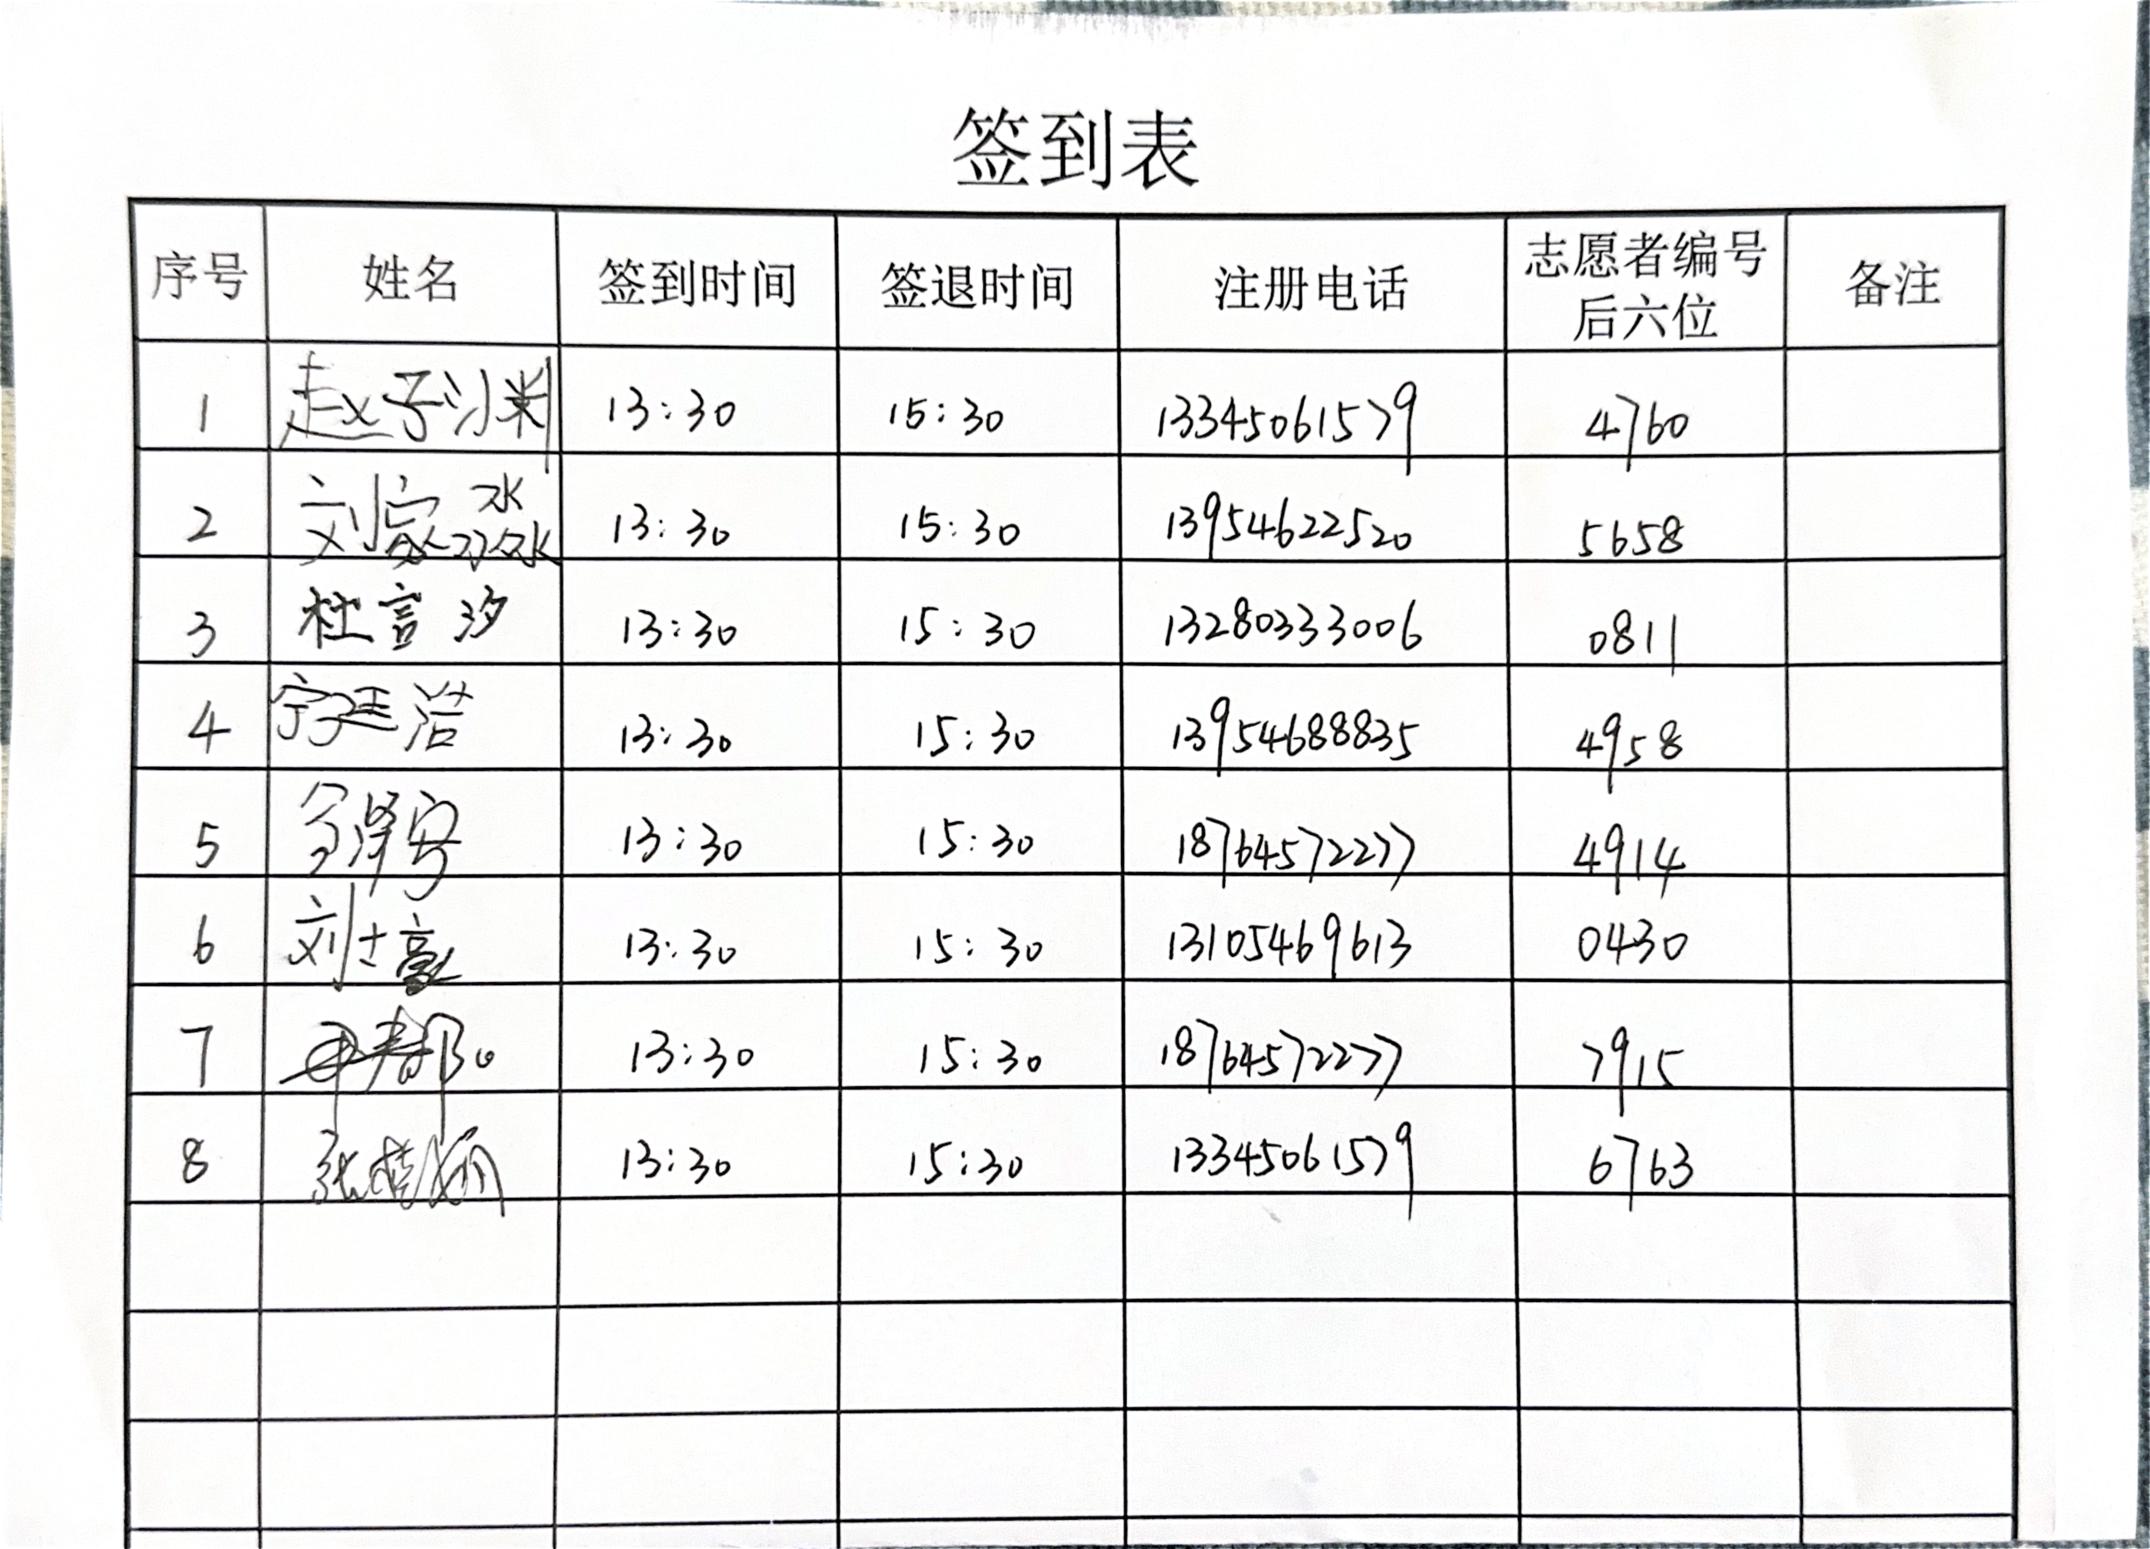 签到表
序号 姓名 签到时间 签退时间 注册电话 志愿者编号后六位 备注
1 赵子沐 13:30 15:30 13345061579 4760
2 刘家淼 13:30 15:30 13954622520 5658
3 杜言汐 13:30 15:30 13280333006 0811
4 宁廷浩 13:30 15:30 13954688835 4958
5 泽安 13:30 15:30 18764572277 4914
6 刘士豪 13:30 15:30 13105469613 0430
7 13:30 15:30 18764572277 7915
8 张 13:30 15:30 13345061579 6763